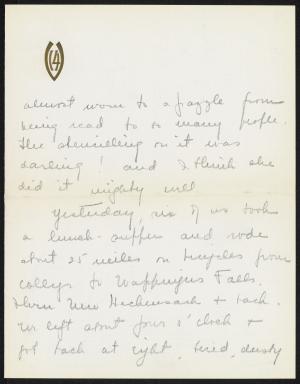 almost worn to a frazzle from
being read to so many people.
The stencilling on it was
darling! and I think she
did it mighty well.
Yesterday, six of us took
a lunch-supper and rode
about 25 miles on bicycles from
college to Wappingers Falls,
New Hackensack + back.
We left about four o'clock +
got back at eight, tired, dusty